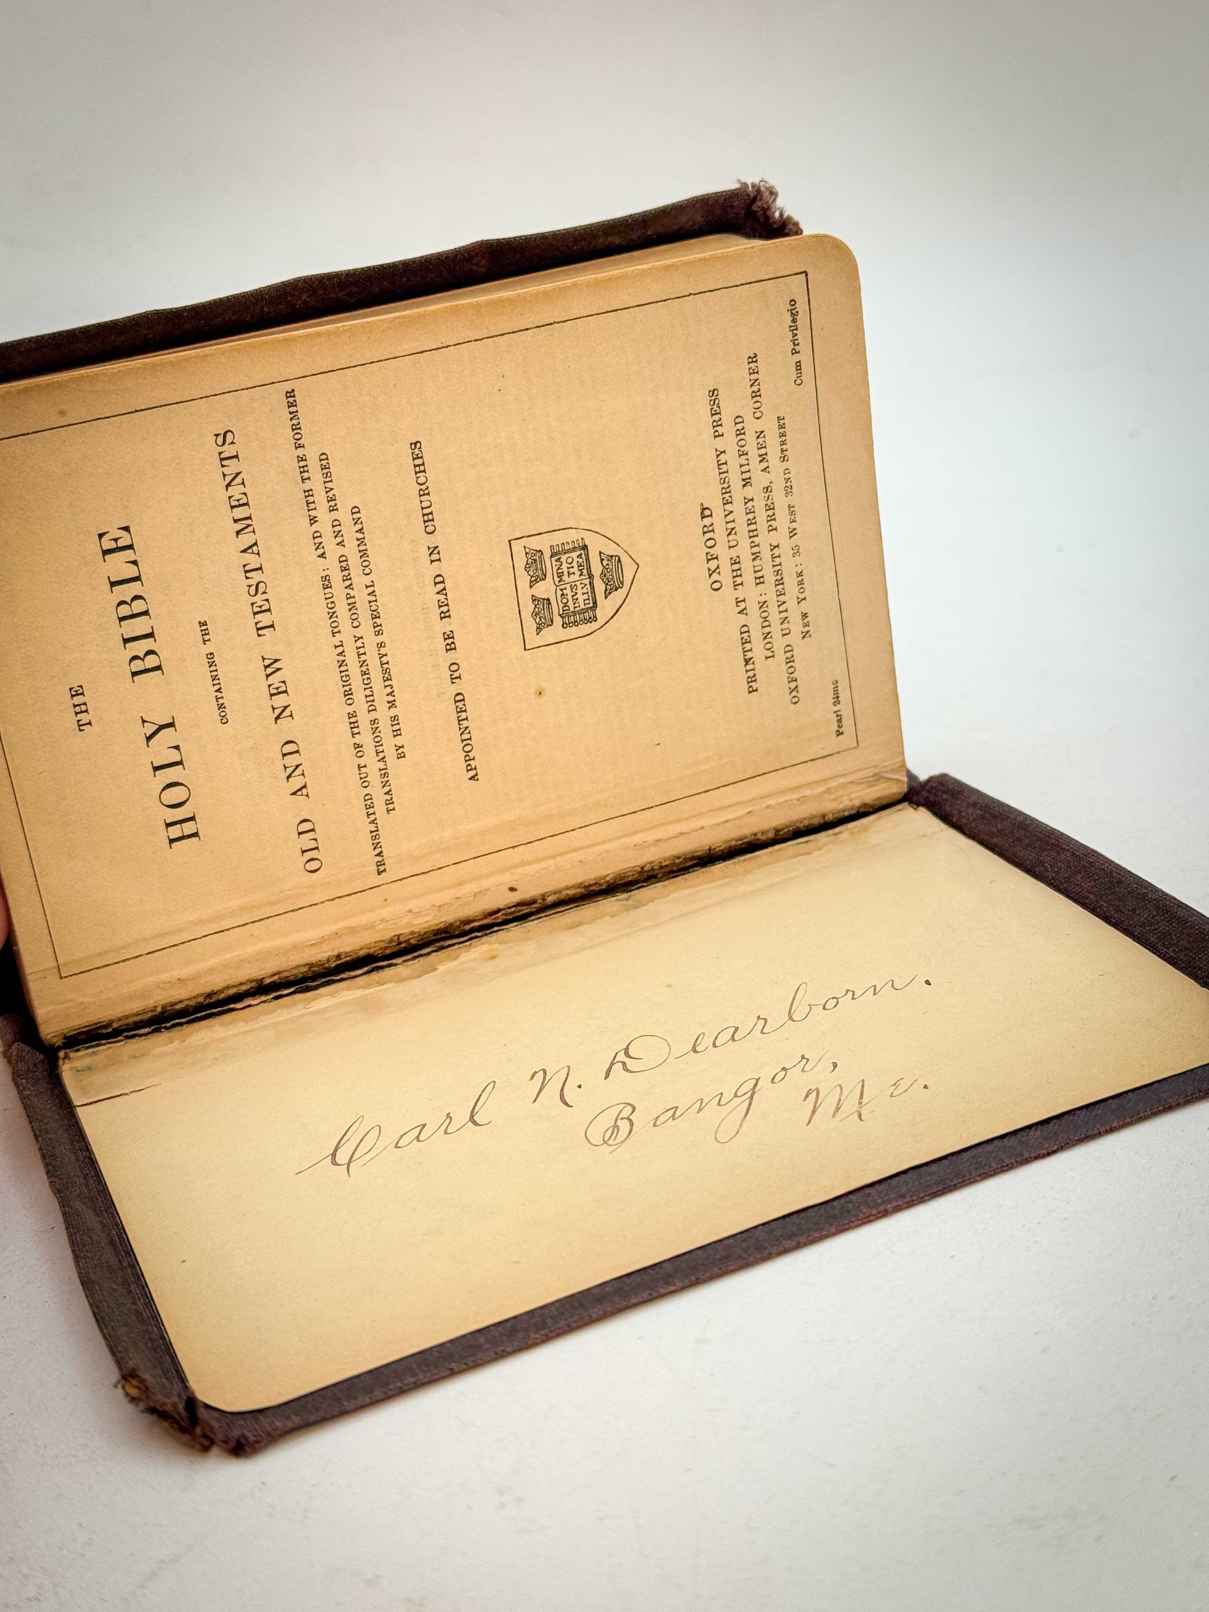 THE
HOLY BIBLE
CONTAINING THE
OLD AND NEW TESTAMENTS
TRANSLATED OUT OF THE ORIGINAL TONGUES: AND WITH THE FORMER
TRANSLATIONS DILIGENTLY COMPARED AND REVISED
BY HIS MAJESTY'S SPECIAL COMMAND
APPOINTED TO BE READ IN CHURCHES
DOMI MINA
INVS TIO
ILLV MEA
OXFORD
PRINTED AT THE UNIVERSITY PRESS
LONDON: HUMPHREY MILFORD
OXFORD UNIVERSITY PRESS, AMEN CORNER
NEW YORK: 35 WEST 32ND STREET
Pearl 24mo Cum Privilegio
Carl N. Dearborn.
Bangor,
Me.